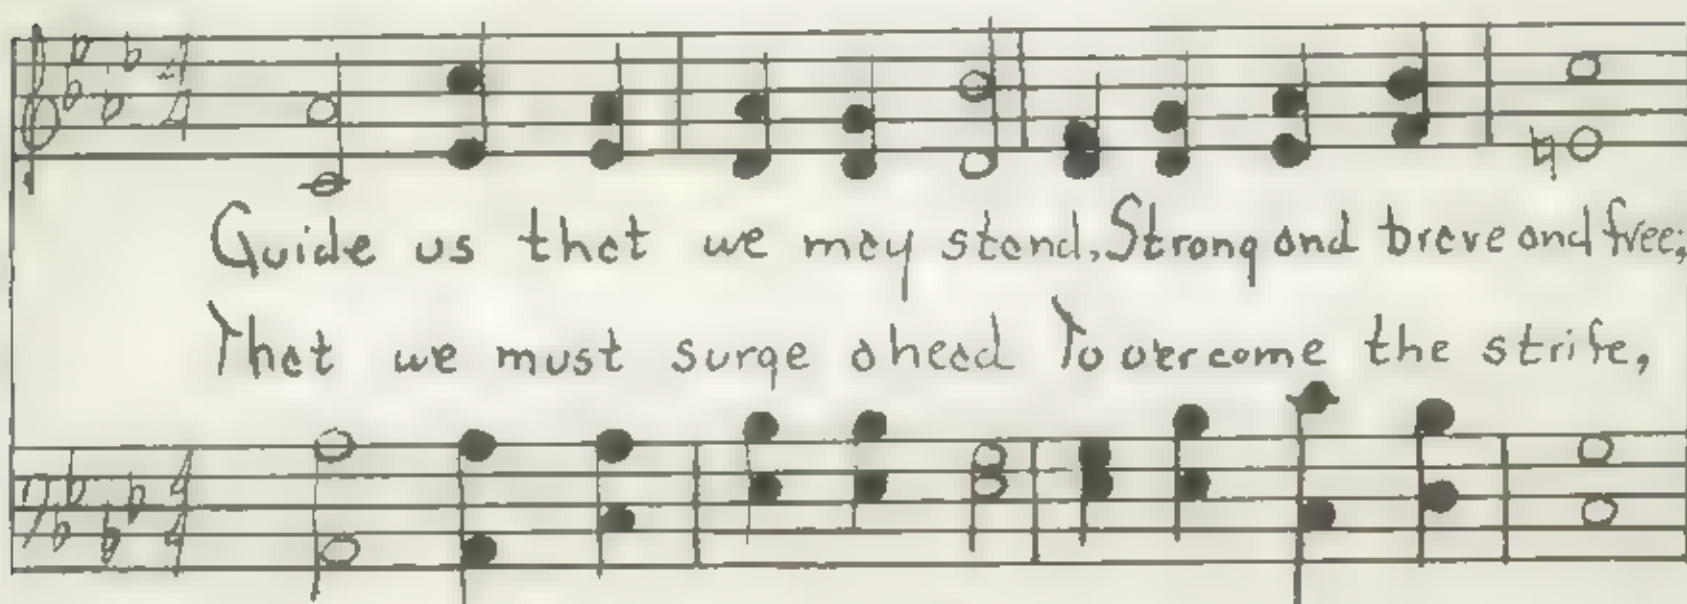 Guide us that we may stand, Strong and brave and free;
That we must surge ahead To overcome the strife,